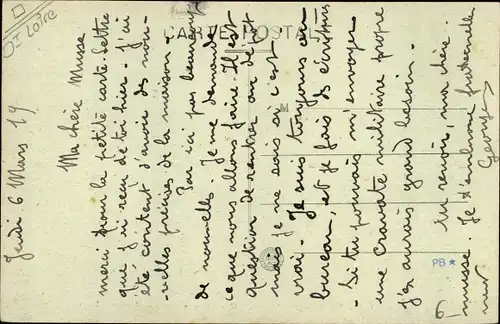 Jeudi 6 Mars 19
Ma chère Musse
merci pour la petite carte-lettre
que j'ai reçu de toi hier. J'ai
été content d'avoir des nou-
velles fraiches de la maison.
Par ici pas beaucoup
de nouvelles. Je me demande
ce que nous allons faire. Il est
question de rentrer au dépôt
mais je ne sais si c'est
vrai. Je suis toujours au
bureau, et je fais des écritures
- Si tu pouvais m'envoyer
une cravate militaire propre
j'en aurais grand besoin.
Au revoir, ma chère
musse. Je t'embrasse fraternelle
ment
Georges
CARTE POSTALE
Loire
PB
6